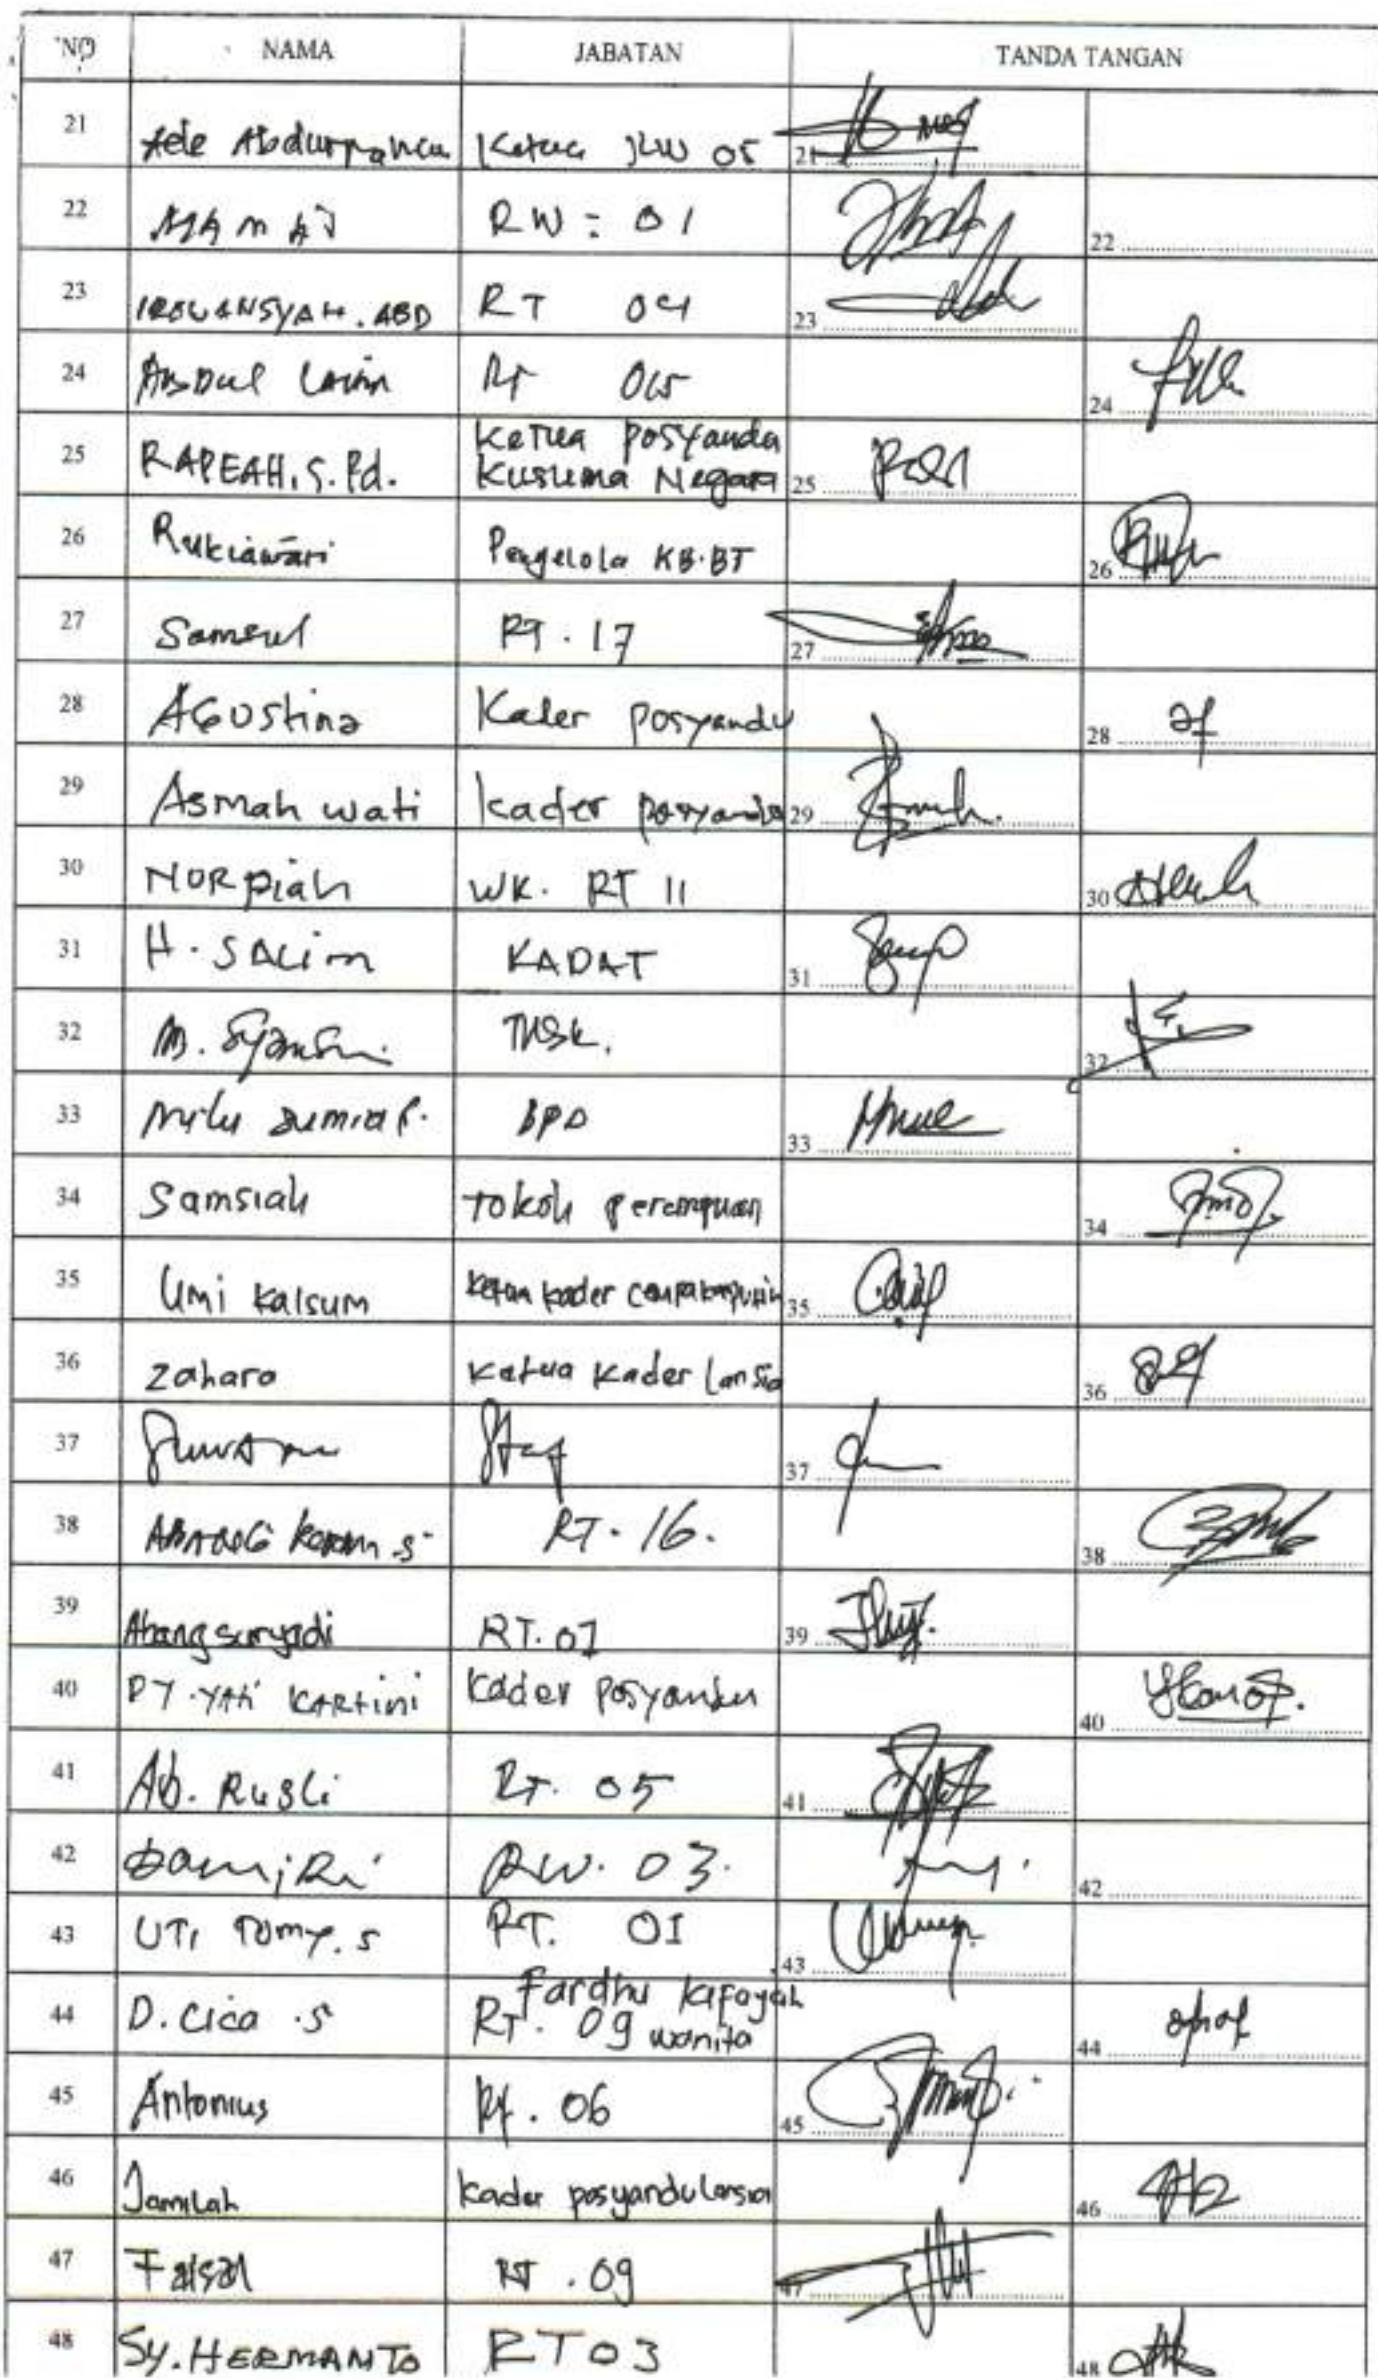 NO NAMA JABATAN TANDA TANGAN
21 Abdurrahman Ketua RW 05 21
22 RW : 01 22
23 IRWANSYAH. ABD RT 04 23
24 ABDUL RT 24
25 RAPEAH, S.Pd. Ketua posyandu
Kusuma Negara 25
26 Rukiawati Pengelola KB.BT 26
27 Samsul RT . 17 27
28 AGUStina Kader posyandu 28
29 Asmah wati Kader posyandu 29
30 NORpiah WK. RT 11 30
31 H. SALim KADAT 31
32 M. 32
33 BPD 33
34 Samsiah Tokoh perempuan 34
35 Umi Kalsum kader 35
36 Zahara Ketua Kader Lansia 36
37 Staf 37
38 RT. 16. 38
39 Abang suryadi RT. 07 39
40 PY. YATi KARtini Kader Posyandu 40
41 Ab. Rusli RT. 05 41
42 RW. 03. 42
43 UTi Tomy. S RT. 01 43
44 D. Cica .S Fardhu kifayah
RT. 09 wanita 44
45 Antonius RT. 06 45
46 Jamilah Kader posyandu lansia 46
47 Faisal RT . 09 47
48 SY. HERMANTO RT 03 48